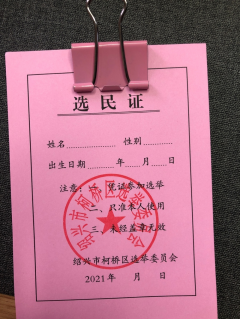 选民证
姓名............性别............
出生日期............年......月......日
注意：一、凭证参加选举
二、只准本人使用
三、未经盖章无效
绍兴市柯桥区选举委员会
绍兴市柯桥区选举委员会
2021年 月 日